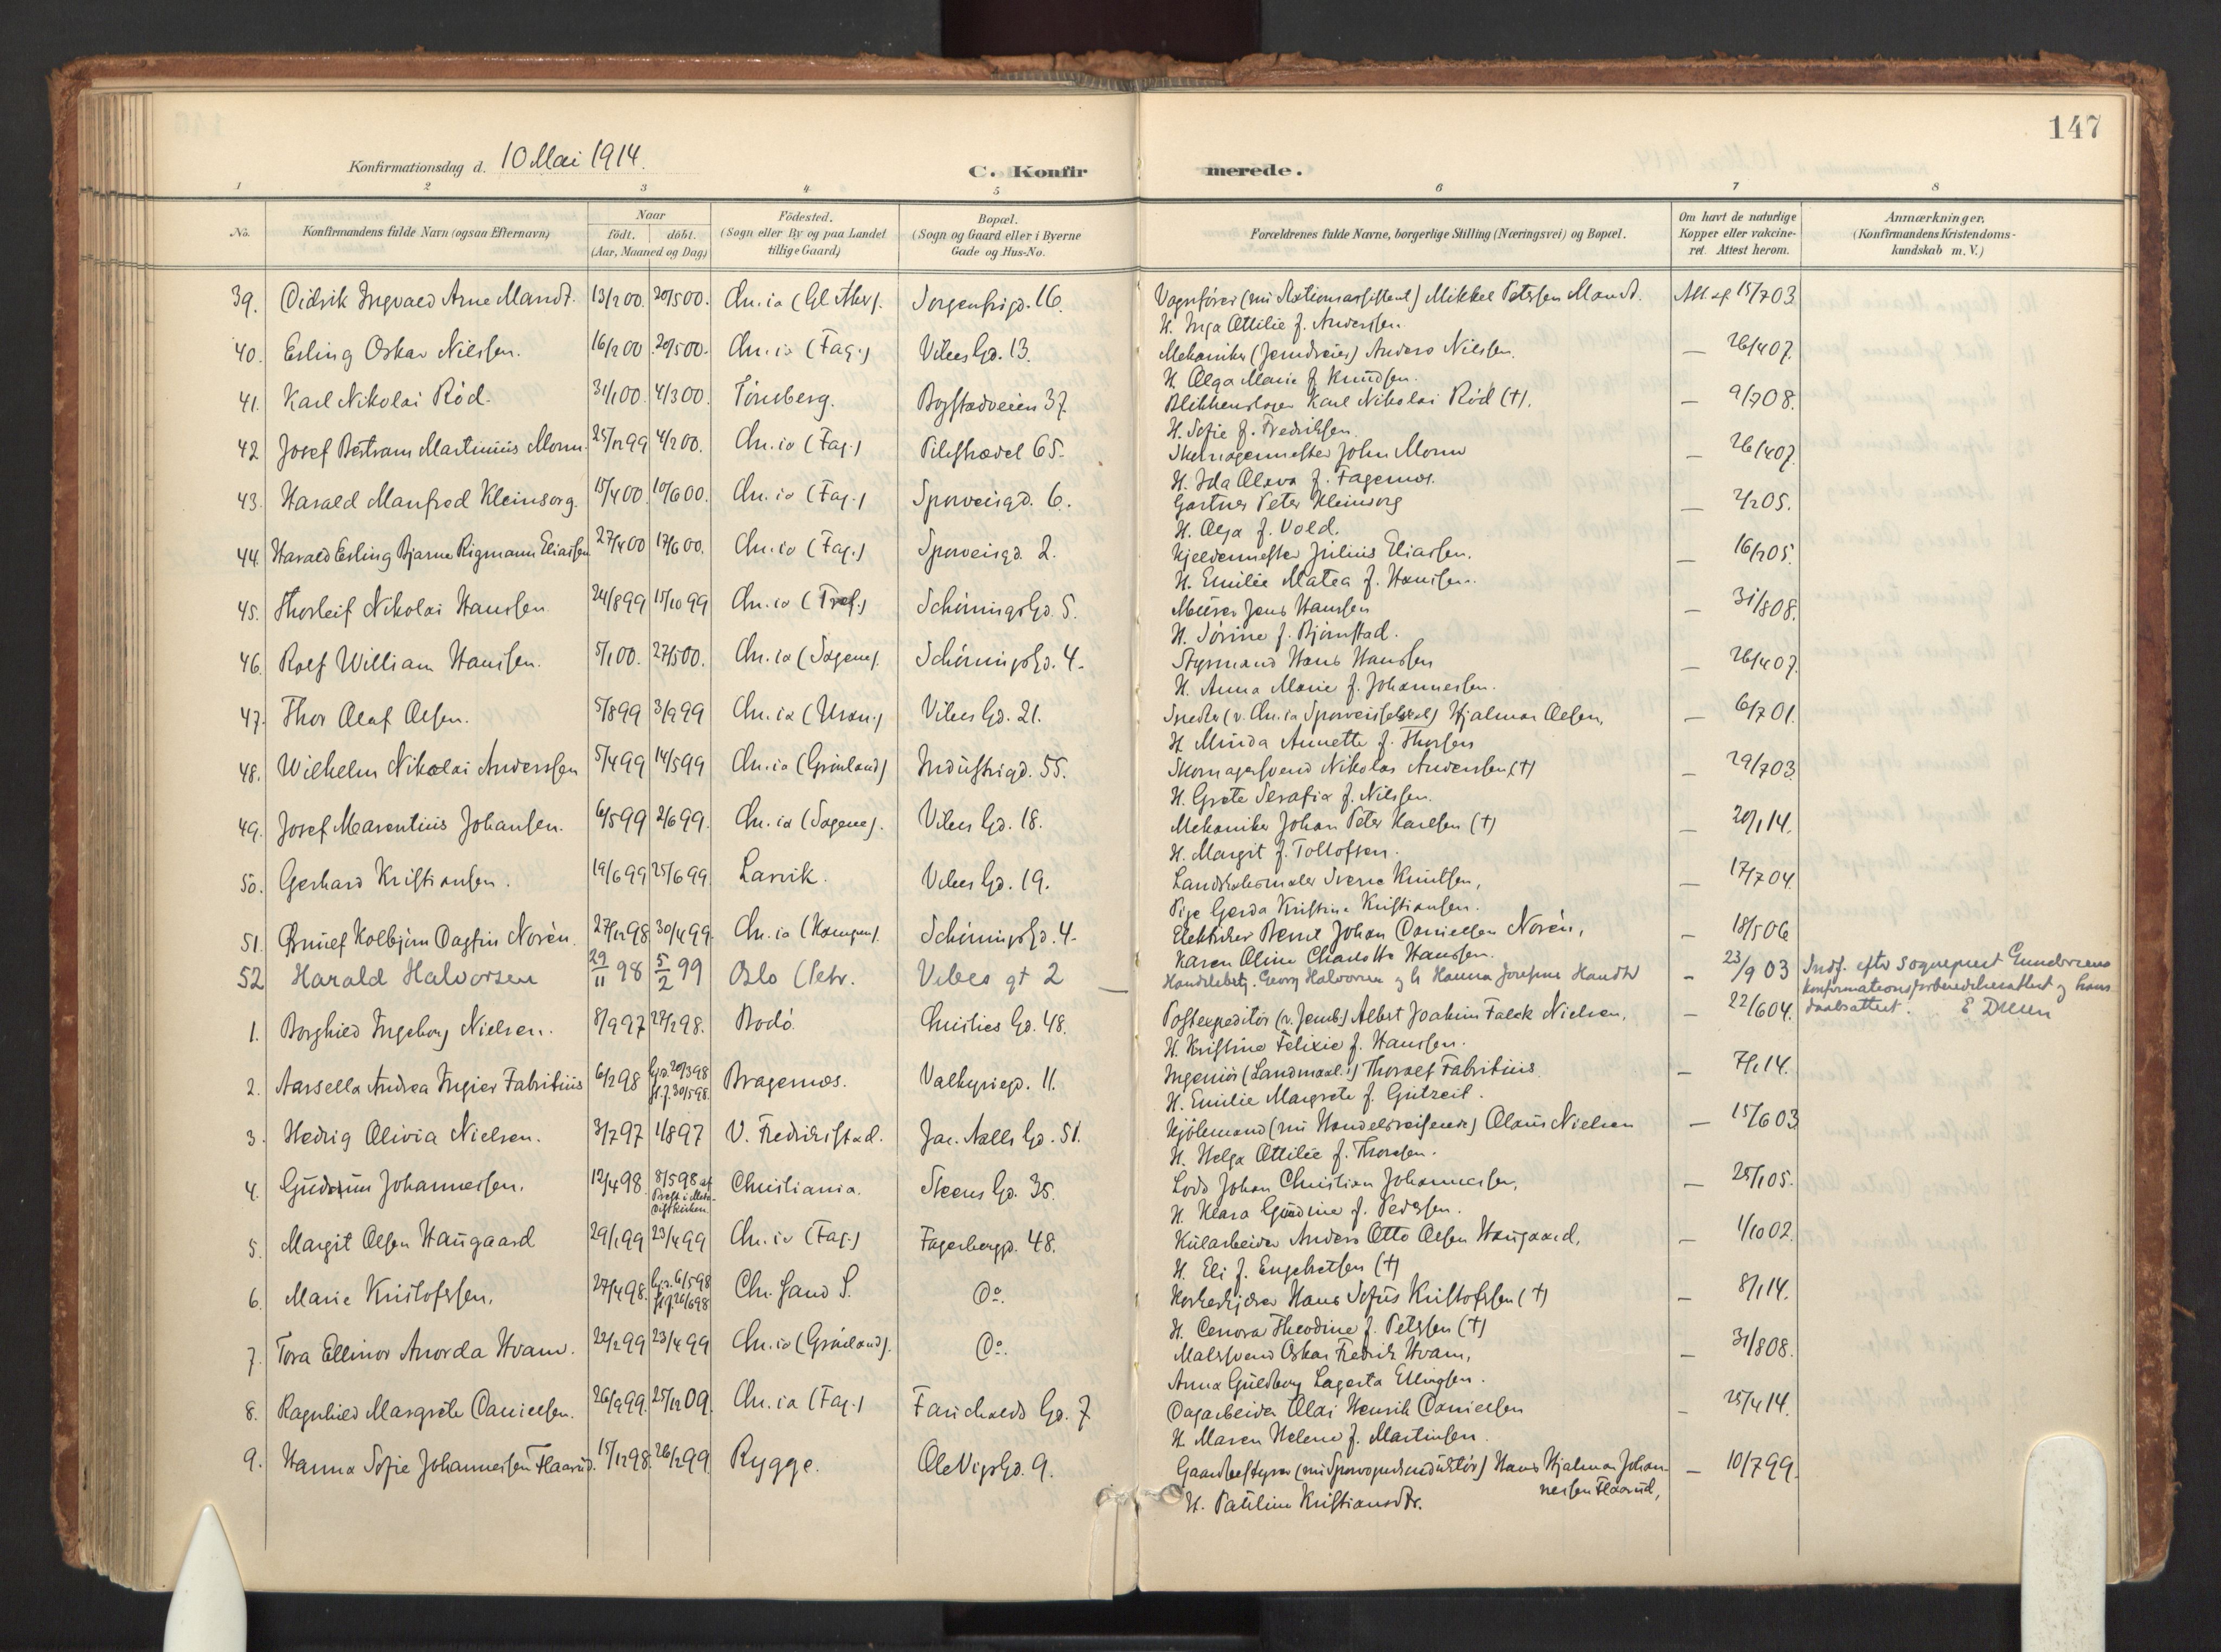 147
Konfirmationsdag d. 10 Mai 1914.
C. Konfirmerede.
1 2 3 4 5 6 7 8
No.
Konfirmandens fulde Navn (ogsaa Efternavn)
Naar
födt. döbt.
(Aar, Maaned og Dag)
Födested.
(Sogn eller By og paa Landet
tillige Gaard)
Bopæl.
(Sogn og Gaard eller i Byerne
Gade og Hus-No.
Forældrenes fulde Navne, borgerlige Stilling (Næringsvei) og Bopæl.
Om havt de naturlige
Kopper eller vakcine-
ret. Attest herom.
Anmærkninger.
(Konfirmandens Kristendoms-
kundskab m. V.)
39. Didrik Ingvald Arne Mandt. 13/2 00. 20/5 00. Chr.ia (Gl. Aker). Sorgenfrigd. 16. Vognfører (nu Stationsassistent) Mikkel Petersen Mandt. Att. af 15/7 03
H. Inga Ottilie f. Anderssen.
40. Erling Oskar Nilssen. 16/2 00. 20/5 00. Chr.ia (Fag.) Vibes Gd. 13. Mekaniker (Jerndreier) Anders Nilssen. — 26/4 07.
H. Olga Marie f. Knudsen.
41. Karl Nikolai Röd. 31/1 00. 4/3 00. Tönsberg. Bogstadveien 37. Blikkenslager Karl Nikolai Röd (†). — 9/7 08.
H. Sofie f. Fredriksen.
42 Josef Bertram Martinius Morm. 25/12 99 4/2 00. Chr.ia (Fag.) Pilestrædet 65. Skomagermester John Morm — 26/4 07.
H. Ida Olava f. Fagernes.
43. Harald Manfred Kleinsorg. 15/4 00. 10/6 00. Chr.ia (Fag.) Sporveisgd. 6. Gartner Peter Kleinsorg — 2/2 05.
H. Olga f. Vold.
44. Harald Erling Bjarne Rigmann Eliassen 27/4 00 17/6 00. Chr.ia (Fag.) Sporveisgd. 2. Kjeldermester Julius Eliassen. — 16/2 05.
H. Emilie Matea f. Hanssen.
45. Thorleif Nikolai Hanssen 24/8 99 15/10 99 Chr.ia (Tref.) Schöningsgd. 5. Murer Jens Hanssen — 31/8 08.
H. Sörine f. Björnstad.
46. Rolf William Hanssen. 5/1 00. 27/5 00. Chr.ia (Sagene). Schöningsgd. 4. Styrmand Hans Hanssen — 26/4 07.
H. Anna Marie f. Johannessen.
47. Thor Olaf Olsen. 5/8 99 3/9 99 Chr.ia (Uran.) Vibes Gd. 21. Snedker (v. Chr.ia Sporveisselskab) Hjalmar Olsen, — 6/7 01.
H. Minda Annette f. Thorsen
48. Wilhelm Nikolai Anderssen 5/4 99 14/5 99 Chr.ia (Grönland) Industrigd. 55. Skomagersvend Nikolai Anderssen (†) — 29/7 03.
H. Grete Serafia f. Nilssen.
49. Josef Marentius Johansen. 6/5 99 2/6 99. Chr.ia (Sagene). Vibes Gd. 18. Mekaniker Johan Peter Karlsen (†) — 20/1 14.
H. Margit f. Tollofsen.
50. Gerhard Kristiansen. 19/6 99 25/6 99. Larvik. Vibes Gd. 19. Landskabsmaler Sverre Knudsen, — 17/7 04.
Pige Gerda Kristine Kristiansen.
51. Brunef Kolbjörn Dagfin Norén. 27/12 98. 30/4 99. Chr.ia (Kampen). Schöningsgd. 4. Elektriker Bernt Johan Danielsen Norén, — 18/5 06
Karen Oline Charlotte Hanssen.
52 Harald Halvorsen 29/11 98 5/2 99 Oslo (Petr. Vibes gt 2 — Handelsbetj. Georg Halvorsen og h Hanna Josefine Handts — 23/9 03 Indf. efter sogneprest Gundersens
konfirmationsforberedelsesattest og hans
daabsattest. E Dreen
1. Borghild Ingeborg Nielsen. 8/9 97 27/2 98. Bodö. Christies Gd. 48. Postexpeditör (v. Jernb.) Albert Joakim Falck Nielsen, — 22/6 04.
H. Kristine Felixie f. Hanssen.
2. Aarsella Andrea Ingier Fabritius 6/2 98 hjd. 20/3 98 st. f. 30/5 98. Bragernes. Valkyriegd. 11. Ingeniör (Landmaal.) Thoralf Fabritius. — 7/1 14.
H. Emilie Margrete f. Gutzeit.
3. Hedvig Olivia Nielsen. 3/7 97 1/8 97 V. Fredrikstad. Jac. Aalls Gd. 51. Kjöbmand (nu Handelsreisende) Olaus Nielsen — 15/6 03
H. Helga Ottilie f. Thoresen.
4. Gudrun Johannessen. 12/4 98. 8/5 98 af Prest i Meto-distkirken. Christiania. Steens Gd. 35. Lods Johan Christian Johannessen, — 25/1 05.
H. Klara Gurine f. Pedersen.
5. Margit Olsen Haugaard 29/1 99 23/4 99 Chr.ia (Fag.) Fagerborggd. 48. Kularbeider Anders Otto Olsen Haugaard, — 1/10 02.
H. Eli f. Engebretsen (†)
6. Marie Kristofersen. 27/4 98. hjd. 6/5 98 st. f. 26/6 98 Chr.sand S. Do. Korkskjærer Hans Sofus Kristofersen (†) — 8/1 14.
H. Lenora Theodine f. Petersen (†)
7. Tora Ellinor Anorda Hvam. 22/2 99 23/4 99 Chr.ia (Grönland). Do. Malersvend Oskar Fredrik Hvam, — 31/8 08.
Anna Guldborg Lagerta Ellingsen.
8. Ragnhild Margrete Danielsen. 26/9 99. 25/12 09. Chr.ia (Fag.) Fauchalds Gd. 7 Dagarbeider Olai Henrik Danielsen — 25/4 14.
H. Maren Helene f. Martinsen.
9. Hanna Sofie Johannessen Flaarud. 15/12 98. 26/2 99 Rygge. Ole Vigs Gd. 9. Gaardbestyrer (nu Sporvognskonduktör) Hans Hjalmar Johan- — 10/7 99.
nessen Flaarud,
H. Pauline Kristiansdtr.